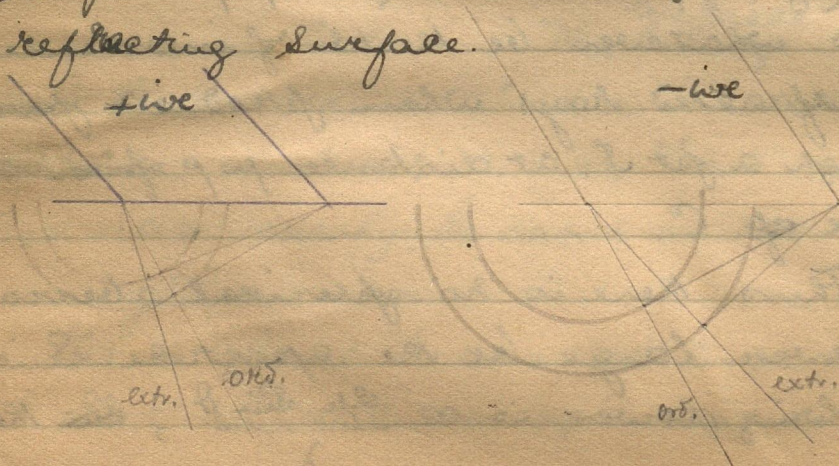 reflecting surface.
+ive
-ive
extr.
ord.
ord.
extr.